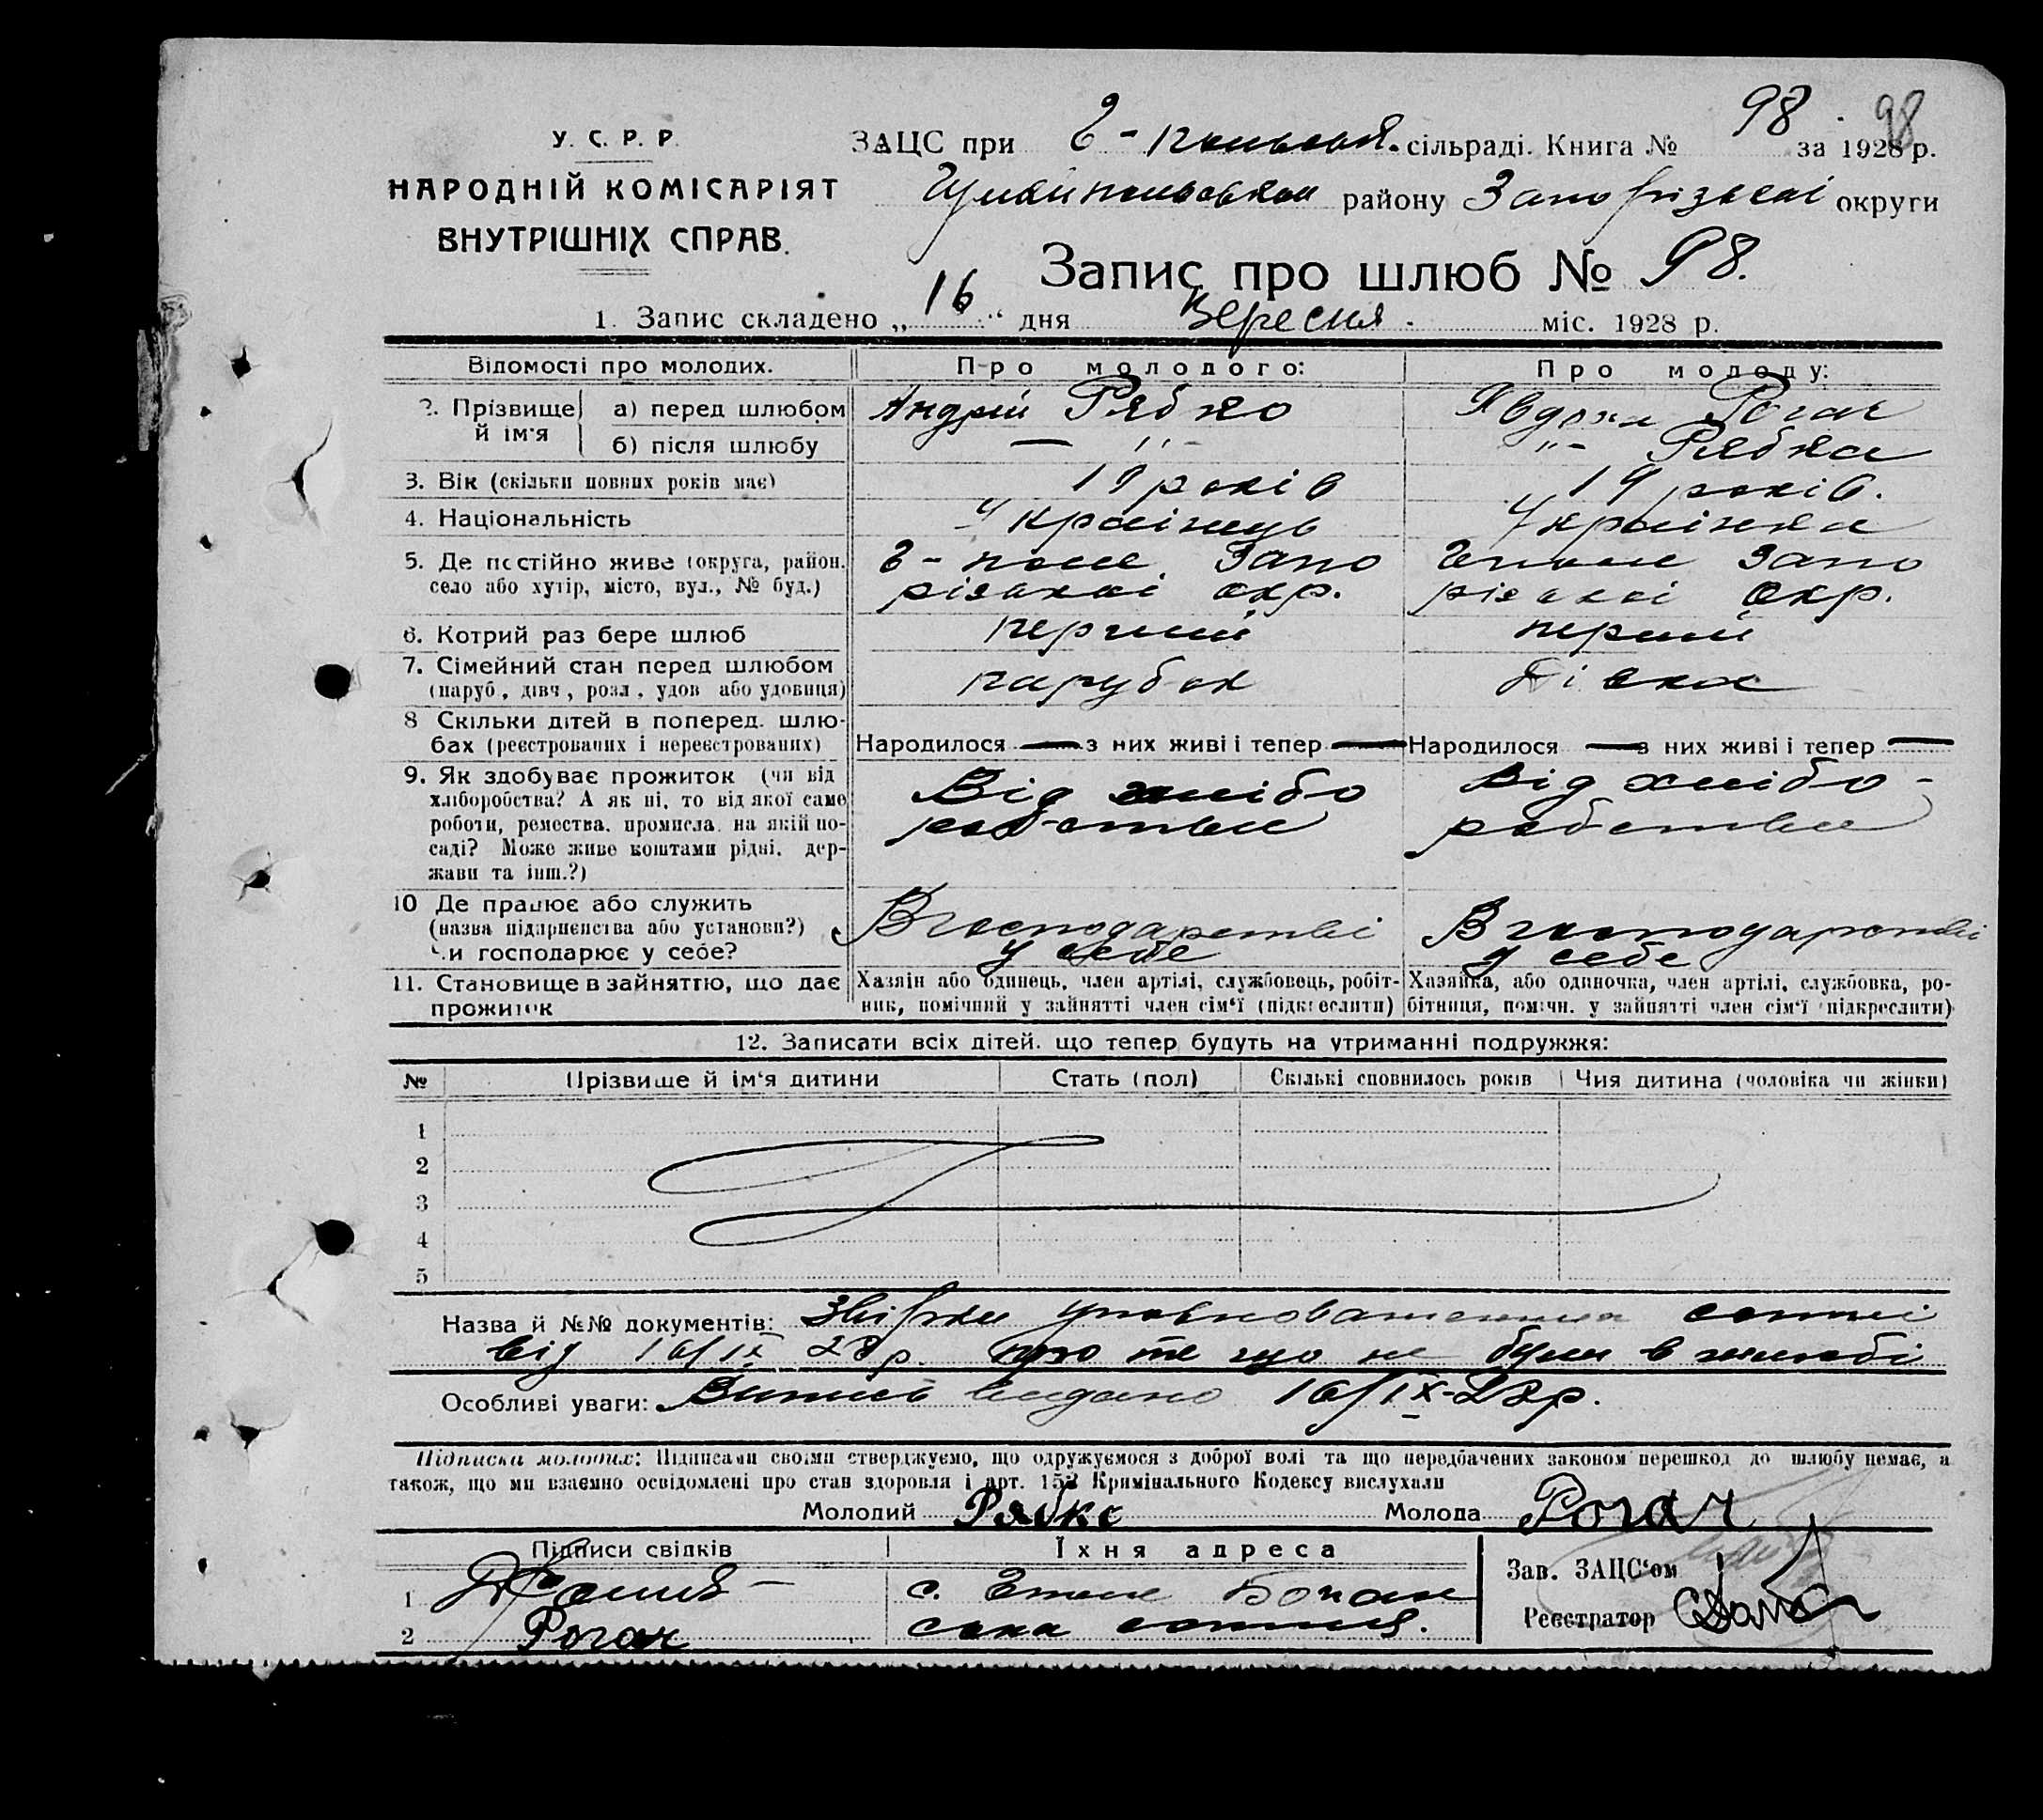 98
98
У. С. Р. Р.
ЗАЦС при Г-пильськ. сільраді. Книга № за 1928 р.
НАРОДНІЙ КОМІСАРІЯТ
Гуляйпильському району Запорізької округи
ВНУТРІШНІХ СПРАВ.
Запис про шлюб № 98.
1. Запис складено „16“ дня Вересня міс. 1928 р.
Відомості про молодих. Про молодого: Про молоду:
2. Прізвище й ім'я а) перед шлюбом Андрій Рябко Явдоха Рогач
б) після шлюбу — " — " — Рябка
3. Вік (скільки повних років має) 19 років 19 років.
4. Національність Українець Українка
5. Де постійно живе (округа, район, Г-поле Запо Гполе Запо
село або хутір, місто, вул., № буд.) різькоі окр. різькоі окр.
6. Котрий раз бере шлюб перший перший
7. Сімейний стан перед шлюбом
(паруб., дівч., розл., удов. або удовиця) парубок дівка
8 Скільки дітей в поперед. шлю-
бах (реєстрованих і нереєстрованих) Народилося — з них живі і тепер — Народилося — з них живі і тепер —
9. Як здобуває прожиток (чи від Від хлібо Від хлібо-
хліборобства? А як ні, то від якої саме робства робства
роботи, ремества, промисла, на якій по-
саді? Може живе коштами рідні, дер-
жави та інш.?)
10 Де працює або служить
(назва підприємства або установи?) В господарстві В господарстві
Чи господарює у себе? у себе у себе
11. Становище в зайняттю, що дає Хазяїн або одинець, член артілі, службовець, робіт- Хазяйка, або одиночка, член артілі, службовка, ро-
прожиток ник, помічний у зайнятті член сім'ї (підкреслити) бітниця, помічн. у зайнятті член сім'ї (підкреслити)
12. Записати всіх дітей, що тепер будуть на утриманні подружжя:
№ Прізвище й ім'я дитини Стать (пол) Скількі сповнилось років Чия дитина (чоловіка чи жінки)
1
2
3
4
5
Назва й №№ документів: Звірки уповноваженника сотні
від 16/IX 28 р. про те що не були в шлюбі
Особливі уваги: Витись видано 16/IX-28р.
Підписка молодих: Підписами своїми стверджуємо, що одружуємося з доброї волі та що передбачених законом перешкод до шлюбу немає, а
також, що ми взаємно освідомлені про стан здоровля і арт. 152 Кримінального Кодексу вислухали
Молодий Рябко Молода Рогач
Підписи свідків Їхня адреса
Зав. ЗАЦС'ом
1 с. Гполе Бочан
Реєстратор
2 Рогач ська сотня.